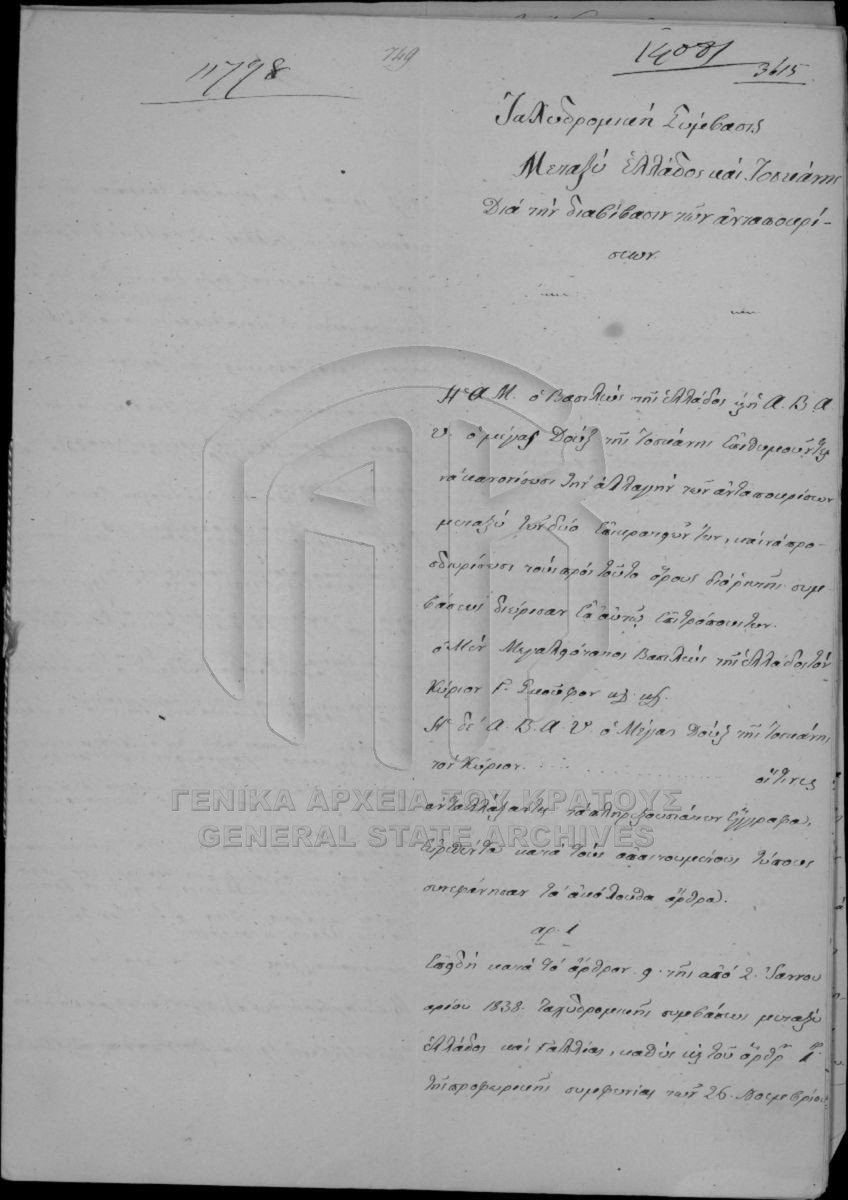 749
14081
11798
3615
Ταχυδρομική Σύμβασις
Μεταξύ Ἑλλάδος καί Τοσκάνης
Διά τήν διαβίβασιν τῶν ἀνταποκρί-
σεων.
Ἡ Α Μ. ὁ Βασιλεύς τῆς Ἑλλάδος κ ἡ Α. Β Α
Υ. ὁ μέγας Δούξ τῆς Τοσκάνης ἐπιθυμοῦντες
νά κανονίσωσι τήν ἀλλαγήν τῶν ἀνταποκρίσεων
μεταξύ τῶν δύο ἐπικρατειῶν των, καί νά προ-
σδιορίσωσι τούς πρός τοῦτο ὅρους διά ρητῆς συμ-
βάσεως διώρισαν ἐπ αὐτῷ ἐπιτρόπους των.
ὁ Μέν Μεγαλειότατος Βασιλεύς τῆς Ἑλλάδος τόν
Κύριον Γ. Σκοῦφον κλ. κλ.
Ἡ δέ Α. Β. Α. Υ. ὁ Μέγας Δούξ τῆς Τοσκάνης
τόν Κύριον . . . . . . . . . οἵτινες
ἀνταλλάξαντες τά πληρεξουσιάτων ἔγγραφα,
εὑρεθέντα κατά τούς ἀπαιτουμένους τύπους
συνεφώνησαν τά ἀκόλουθα ἄρθρα.
αρ. 1
Ἐπειδή κατά τό ἄρθρον 9. τῆς ἀπό 2. Ἰαννου
αρίου 1838. ταχυδρομικῆς συμβάσεως μεταξύ
Ἑλλάδος καί Γαλλίας, καθώς κ τοῦ ἄρθρ 1
τῆς προφορικῆς συμφωνίας τῶν 26. Νοεμβρίου
ΓΕΝΙΚΑ ΑΡΧΕΙΑ ΤΟΥ ΚΡΑΤΟΥΣ
GENERAL STATE ARCHIVES